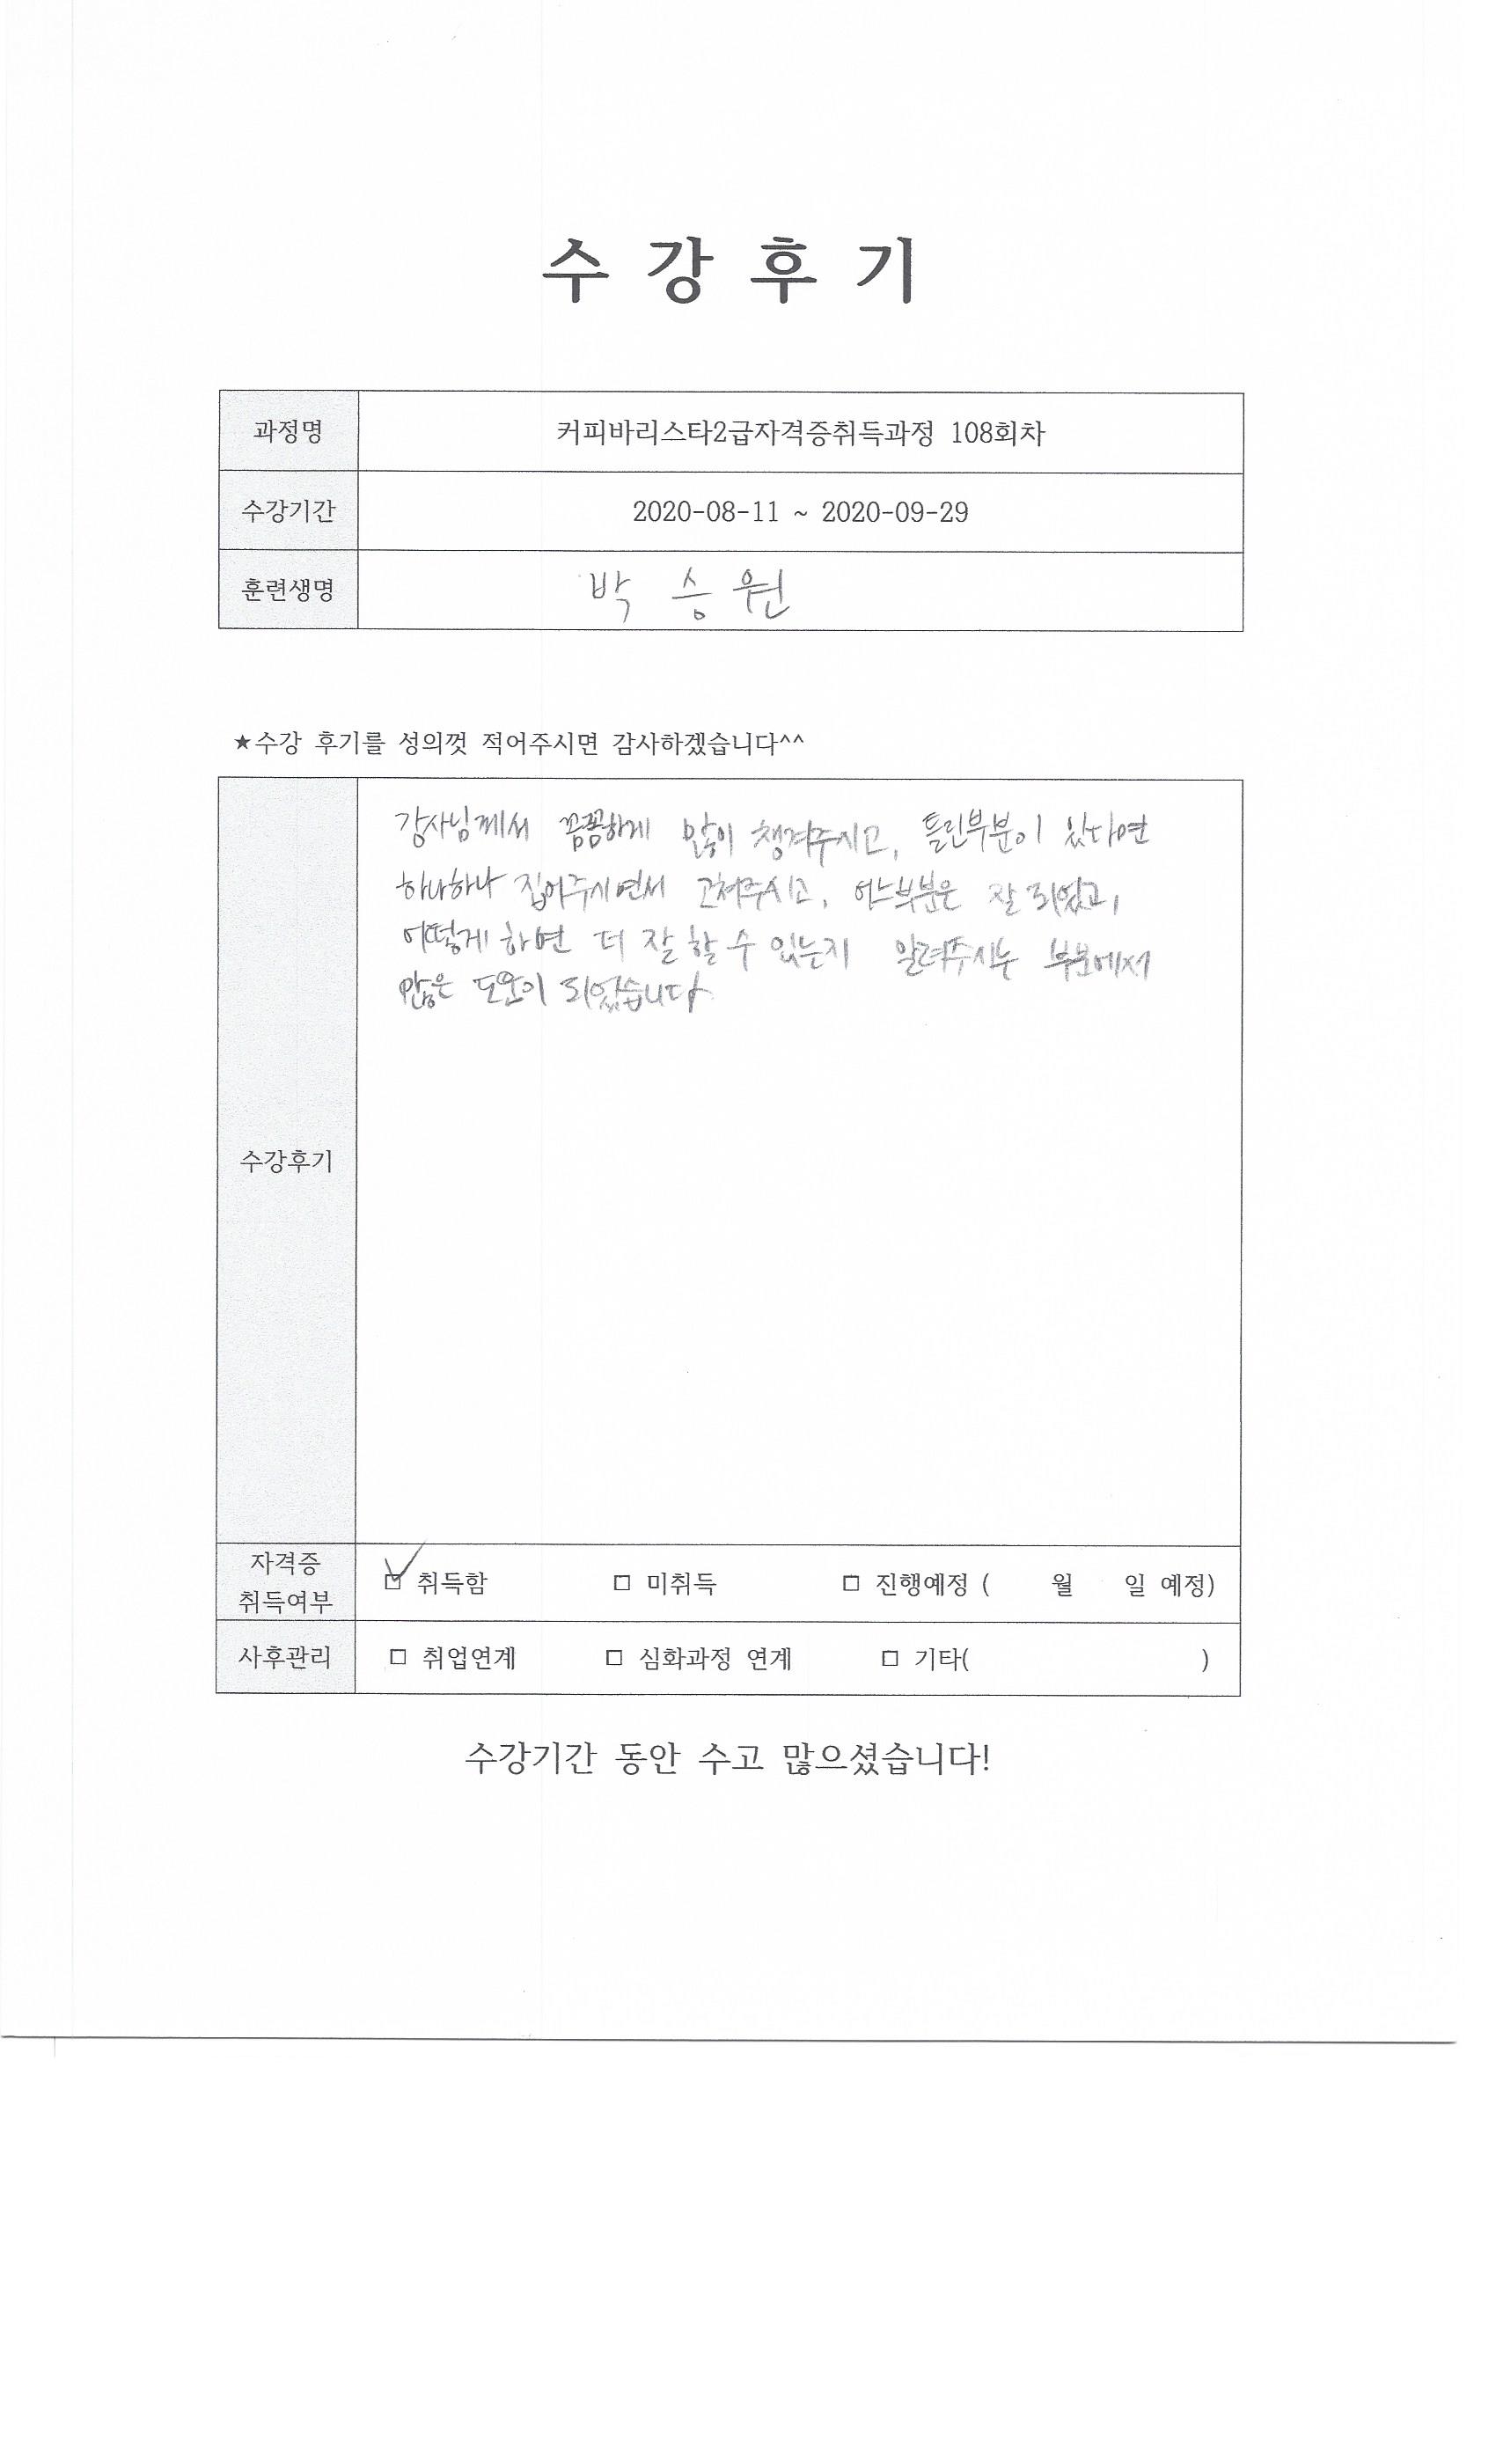 수 강 후 기
과정명 커피바리스타2급자격증취득과정 108회차
수강기간 2020-08-11 ~ 2020-09-29
훈련생명 박 승 원
★수강 후기를 성의껏 적어주시면 감사하겠습니다^^
강사님께서 꼼꼼하게 많이 챙겨주시고, 틀린부분이 있다면
하나하나 집어주시면서 고쳐주시고, 어느부분은 잘 되었고,
어떻게 하면 더 잘 할 수 있는지 알려주시는 부분에서
많은 도움이 되었습니다
수강후기
자격증
취득여부 ☑ 취득함 □ 미취득 □ 진행예정 ( 월 일 예정)
사후관리 □ 취업연계 □ 심화과정 연계 □ 기타( )
수강기간 동안 수고 많으셨습니다!